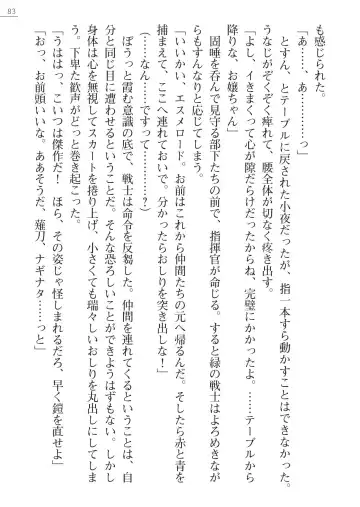 83
も感じられた。
「あ……、あ………っ」
とすん、とテーブルに戻された小夜だったが、指一本すら動かすことはできなかった。
うなじがぞくぞく痺れて、腰全体が切なく疼き出す。
「よし、イきまくって心が隙だらけだったからね、完璧にかかったよ。……テーブルから
降りな、お嬢ちゃん」
固唾を呑んで見守る部下たちの前で、指揮官が命じる。すると緑の戦士はよろめきなが
らもすんなりと応じてしまう。
「いいかい、エスメロード。お前はこれから仲間たちの元へ帰るんだ。そしたら赤と青を
捕まえて、ここへ連れておいで。分かったらおしりを突き出しな!」
(……なん……ですって…………?)
ぼうっと霞む意識の底で、戦士は命令を反芻した。仲間を連れてくるということは、自
分と同じ目に遭わせるということだ。そんな恐ろしいことができようはずもない。しかし
身体は心を無視してスカートを捲り上げ、小さくても瑞々しいおしりを丸出しにしてしま
う。下卑た歓声がどっと巻き起こった。
「うははっ、こいつは傑作だ! ほら、その姿じゃ怪しまれるだろ、早く鎧を直せよ」
「おっ、お前頭いいな。ああそうだ、薙刀、ナギナタ……っと」